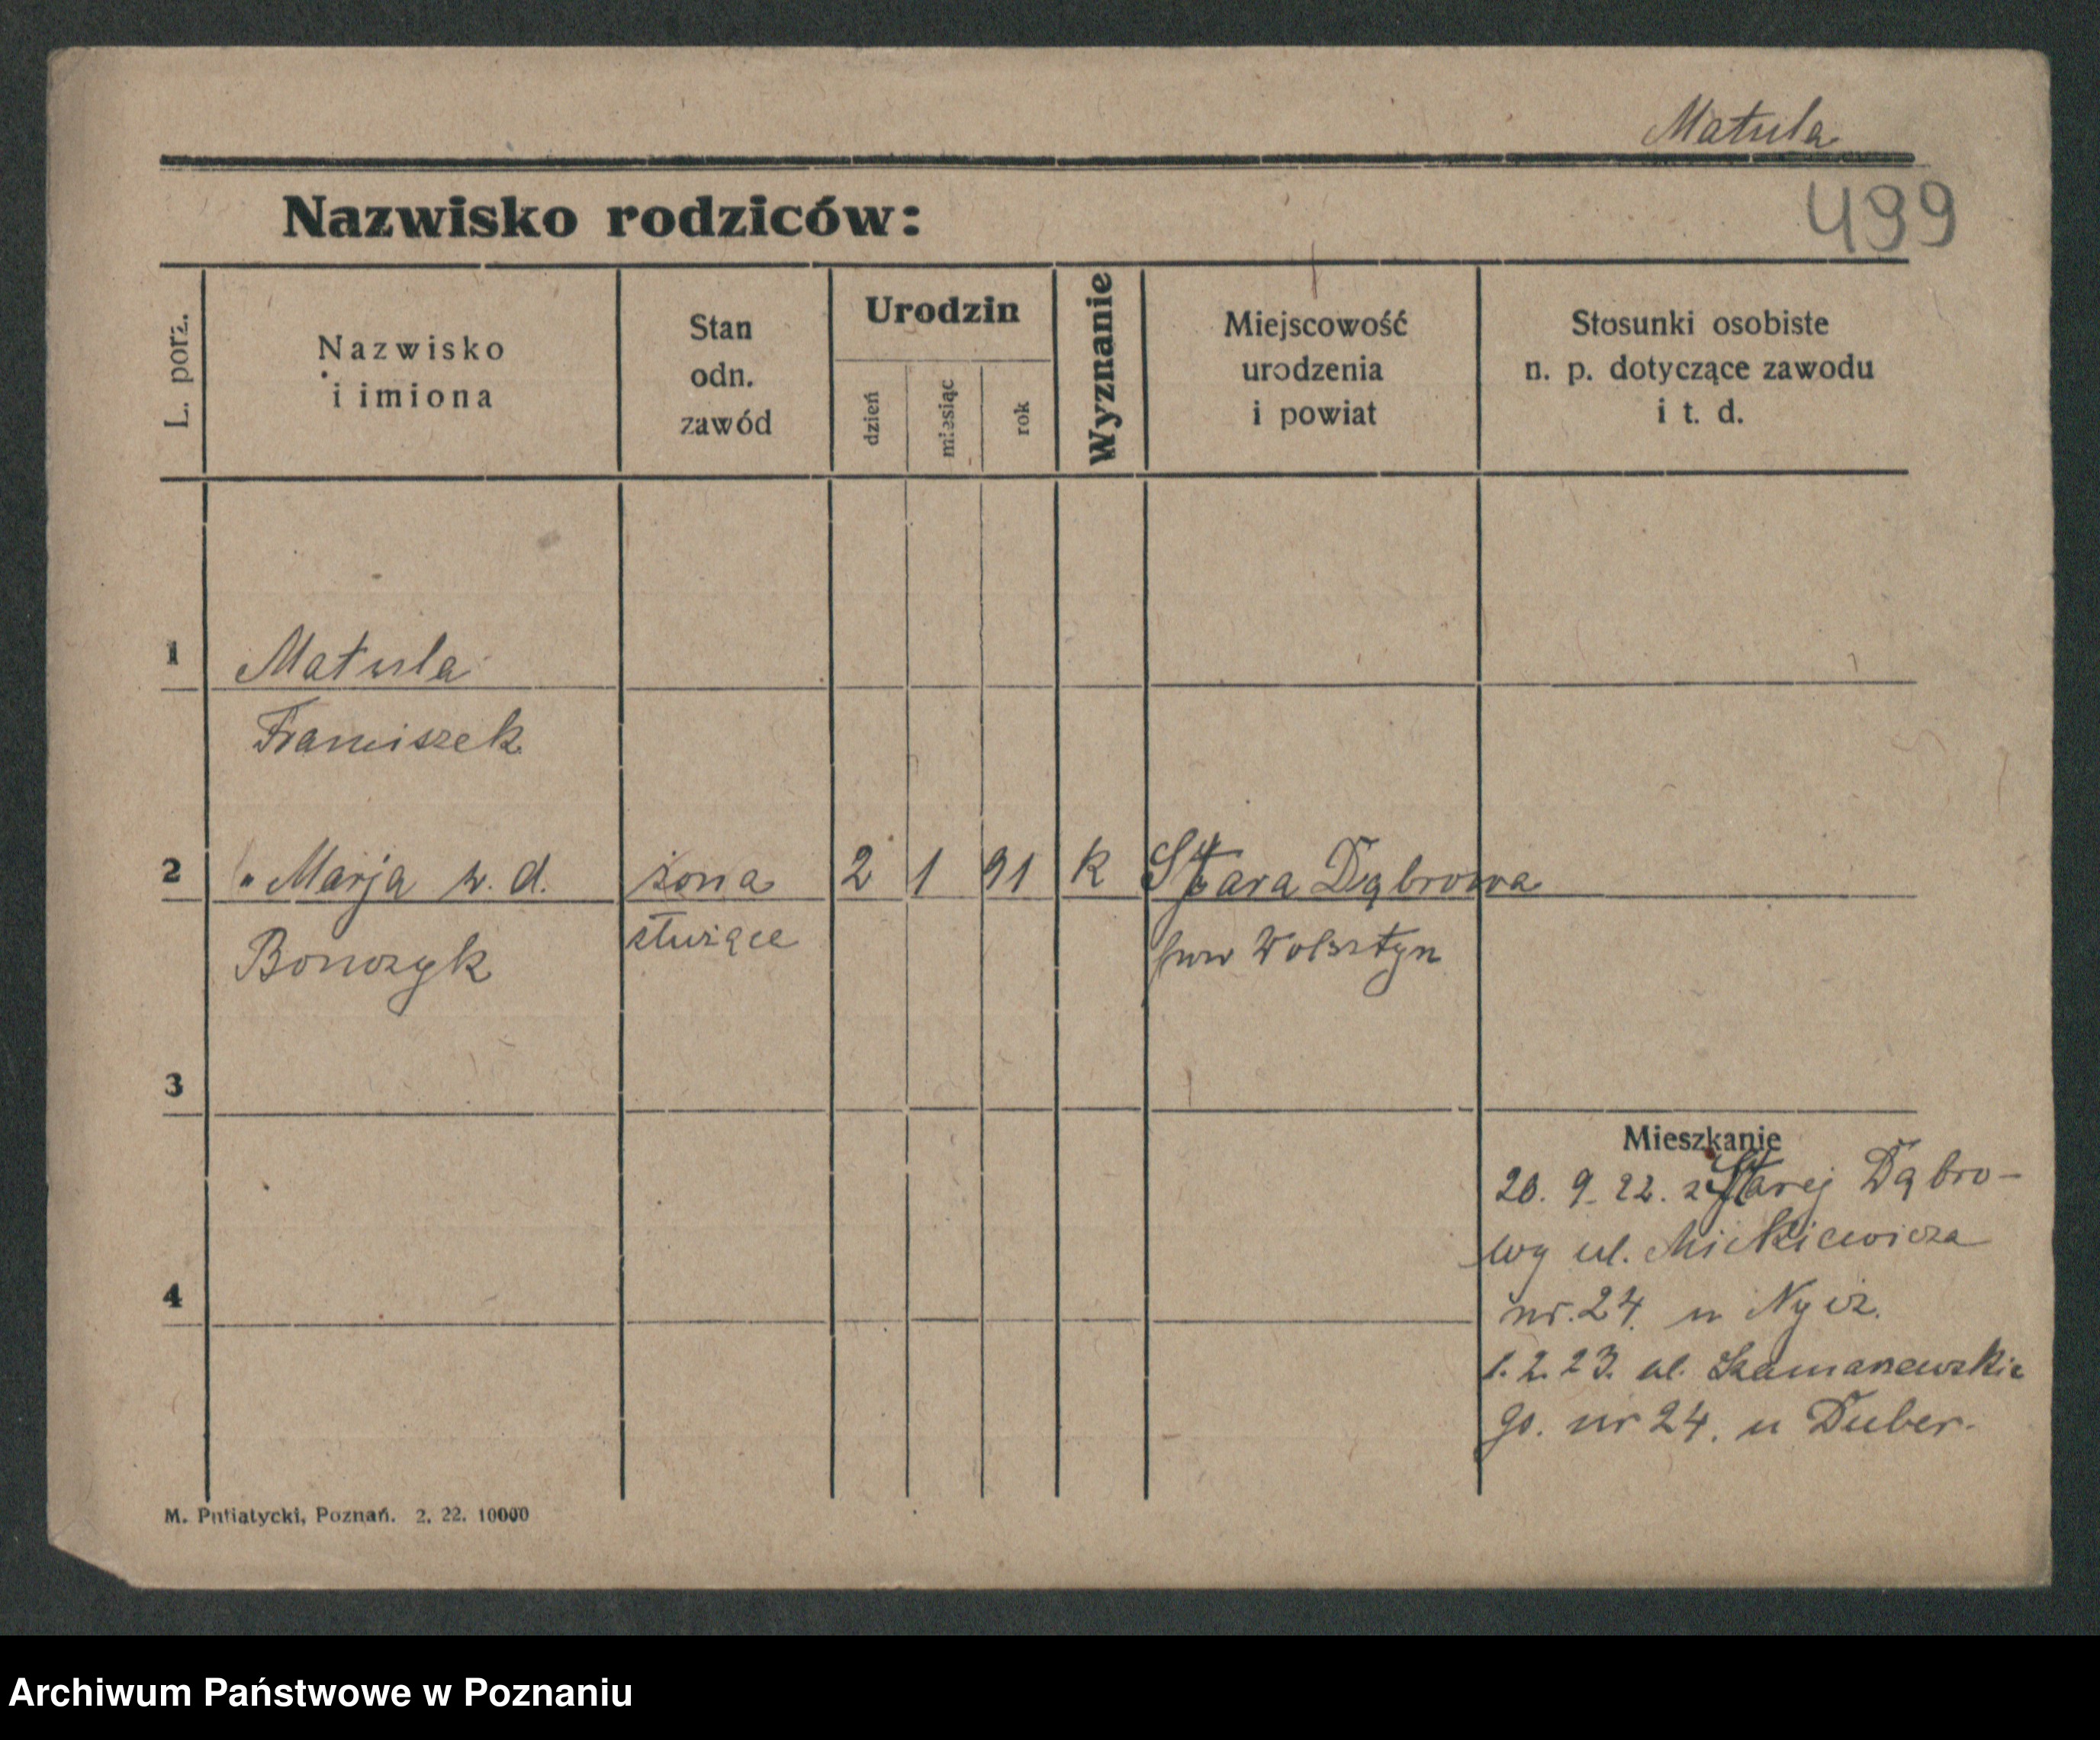 Matula
Nazwisko rodziców:
499
L. porz.
Nazwisko
i imiona
Stan
odn.
zawód
Urodzin
dzień
miesiąc
rok
Wyznanie
Miejscowość
urodzenia
i powiat
Stosunki osobiste
n. p. dotyczące zawodu
i t. d.
1 Matula
Franciszek
2 " Marja w. d. żona 2 1 91 k Stara Dąbrowa
Bonczyk służące pow Wolsztyn
3
Mieszkanie
20. 9. 22. z Starej Dąbro-
wy ul. Mickiewicza
4 nr. 24. u
1. 2. 23. ul. Szamarzewskie
go. nr 24. u Duber.
M. Putiatycki, Poznań. 2. 22. 10000
Archiwum Państwowe w Poznaniu